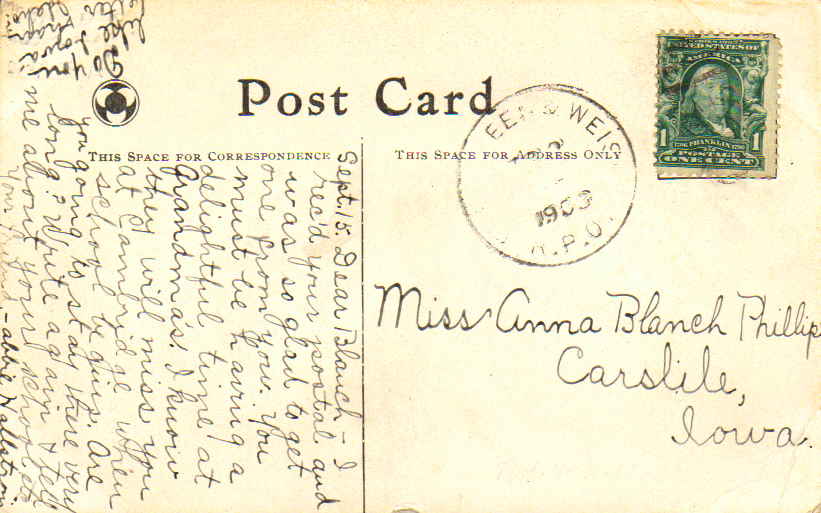 Post Card
THIS SPACE FOR CORRESPONDENCE
THIS SPACE FOR ADDRESS ONLY
WEIS
1903
R.P.O.
SERIES 1902
UNITED STATES OF
AMERICA
1706 FRANKLIN 1790
POSTAGE
1 ONE CENT 1
Miss Anna Blanch Phillips
Carslile,
Iowa.
Sept. 15. Dear Blanch - I
rec'd your postal and
was so glad to get
one from you. You
must be having a
delightful time at
Grandma's. I know
they will miss you
at Cambridge when
school begins. Are
you going to stay there very
long? Write again & tell
me about your school etc
Your friend - Abbie Hallstrom
Do you
like Iowa
better than